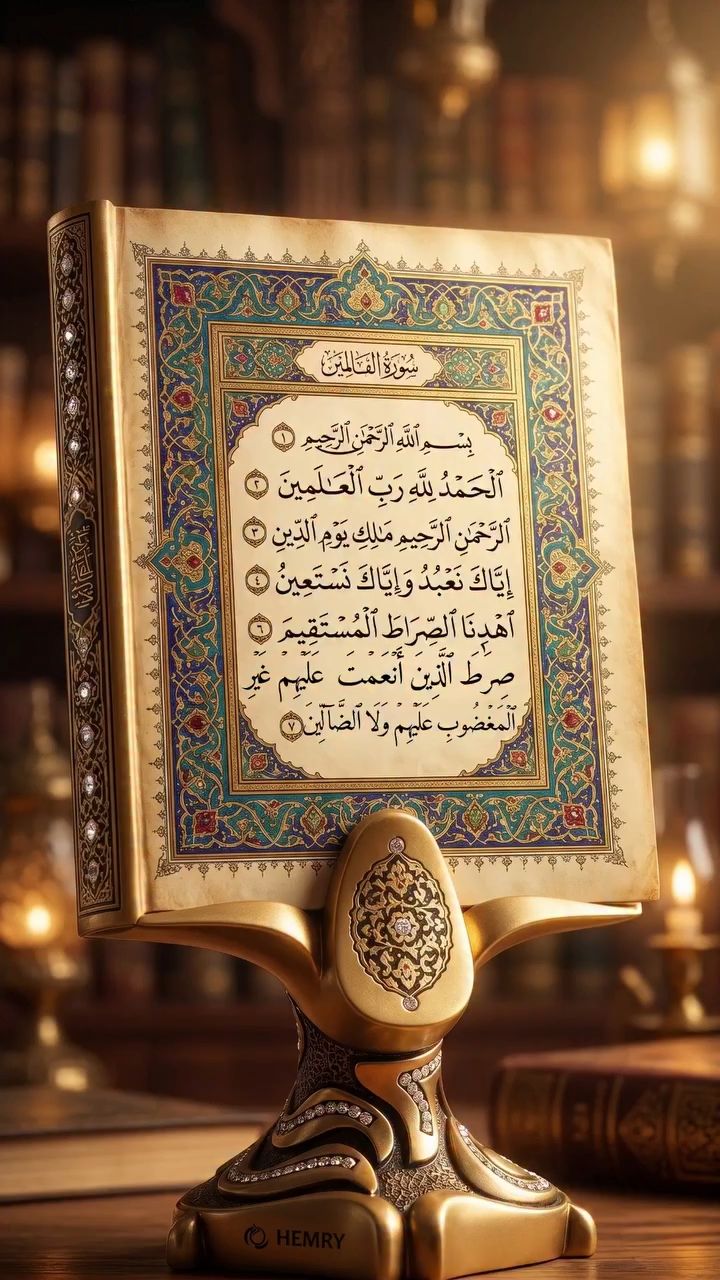 سُورَةُ
بِسْمِ اللَّهِ الرَّحْمَٰنِ الرَّحِيمِ ١
الْحَمْدُ لِلَّهِ رَبِّ الْعَـٰلَمِينَ ٢
الرَّحْمَٰنِ الرَّحِيمِ مَٰلِكِ يَوْمِ الدِّينِ ٣
إِيَّاكَ نَعْبُدُ وَإِيَّاكَ نَسْتَعِينُ ٤
ٱهْدِنَا الصِّرَاطَ الْمُسْتَقِيمَ ٦
صِرَٰطَ الَّذِينَ أَنْعَمتَ عَلَيْهِم غَيْر
الْمَغْضُوبِ عَلَيْهِمْ وَلَا الضَّآلِّينَ ٧
HEMRY